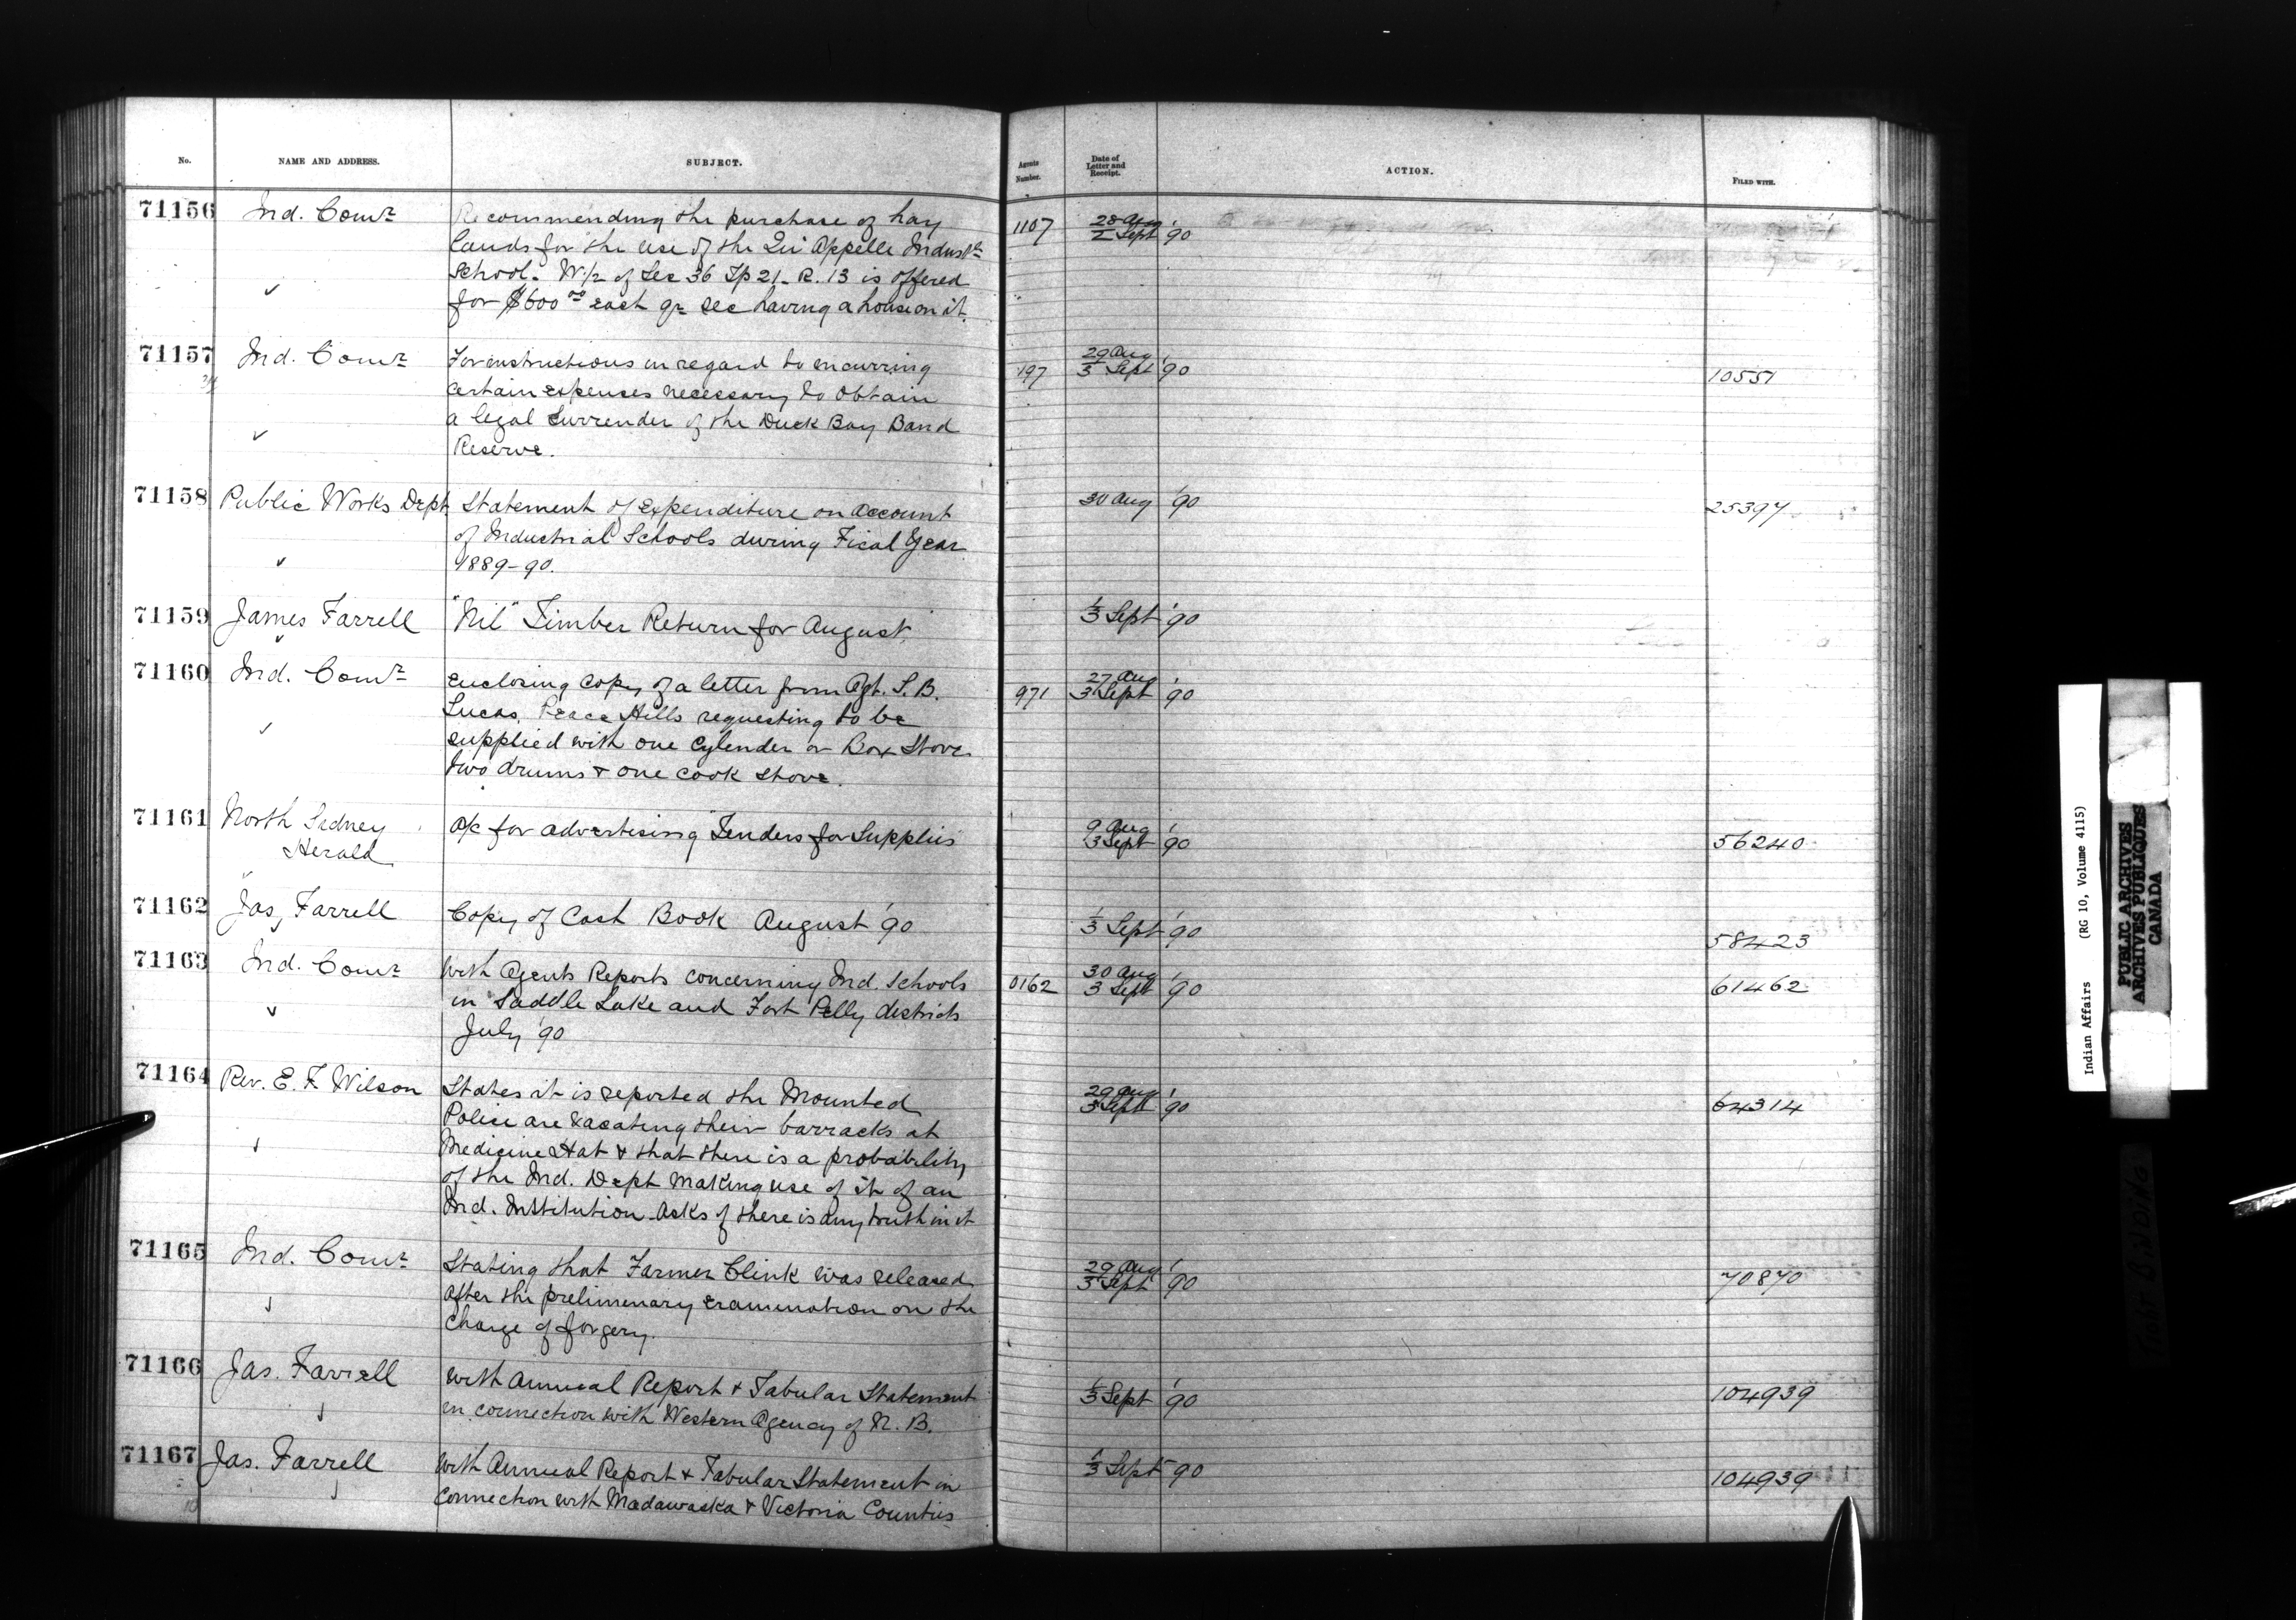 No. NAME AND ADDRESS. SUBJECT. Agents Number. Date of Letter and Receipt. ACTION. FILED WITH.
71156 Ind. Comr Recommending the purchase of hay 1107 28 Aug
lands for the use of the Qu'Appelle Indusl 2 Sept '90
School. W 1/2 of Sec 36 Tp 21. R. 13 is offered
for $600 00 each qr sec having a house on it.
71157 Ind. Comr For instructions in regard to incurring 197 29 Aug
certain expenses necessary to obtain 3 Sept '90 10551
a legal surrender of the Duck Bay Band
Reserve.
71158 Public Works Dept Statement of Expenditure on Account 30 Aug '90 25397
of Industrial Schools during Fical Year
1889-90.
71159 James Farrell "Nil" Timber Return for August. 1/3 Sept '90
71160 Ind. Comr Enclosing Copy of a letter from Agt. S. B. 971 27 Aug
Lucas, Peace Hills requesting to be 3 Sept '90
supplied with one Cylender or Box Stove
two drums & one cook stove.
71161 North Sydney A/c for advertising Tenders for Supplies 9 Aug
Herald 3 Sept '90 56240
71162 Jas Farrell Copy of Cash Book August '90 1/3 Sept '90 58423
71163 Ind. Comr With Agents Reports concerning Ind. Schools 0162 30 Aug
in Saddle Lake and Fort Pelly districts 3 Sept '90 61462
July '90
71164 Rev. E. F. Wilson States it is reported the Mounted 29 Aug
Police are vacating their barracks at 3 Sept '90 64314
Medicine Hat & that there is a probability
of the Ind. Dept making use of it of an
Ind. Institution. Asks if there is any truth in it
71165 Ind. Comr Stating that Farmer Clink was released 29 Aug
after the prelimenary examination on the 3 Sept '90 70870
Charge of forgery.
71166 Jas. Farrell With Annual Report & Tabular Statement 1/3 Sept '90 104939
in connection with Western Agency of N. B.
71167 Jas. Farrell With Annual Report & Tabular Statement in 1/3 Sept '90 104939
Connection with Madawaska & Victoria Counties
Indian Affairs (RG 10, Volume 4115)
PUBLIC ARCHIVES
ARCHIVES PUBLIQUES
CANADA
TIGHT BINDING